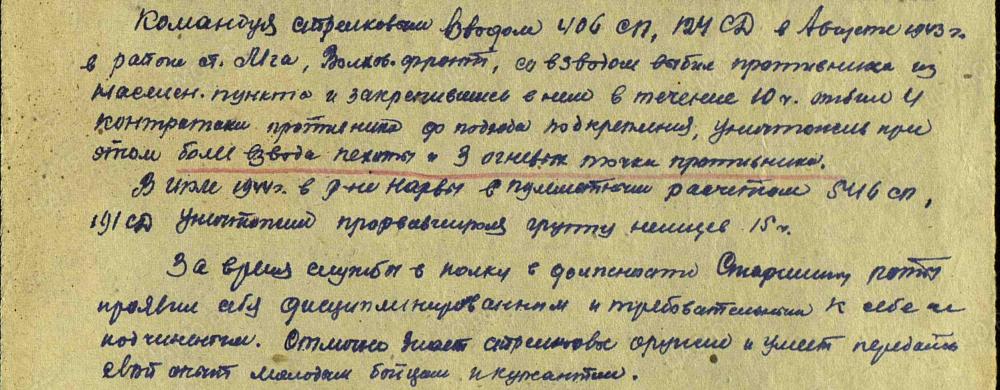 Командуя стрелковым взводом 406 СП, 124 СД в Августе 1943 г.
в районе ст. Мга, Волхов. фронт, со взводом выбил противника из
населен. пункта и закрепившись в нем в течение 10 ч. отбил 4
контратаки противника до подхода подкрепления, уничтожив при
этом более взвода пехоты и 3 огневых точки противника.
В июле 1944 г. в р-не Нарвы с пулеметным расчетом 546 СП,
191 СД уничтожил прорвавшуюся группу немцев 15 ч.
За время службы в полку в должности Старшины роты
проявил себя дисциплинированным и требовательным к себе и
подчиненным. Отлично знает стрелковое оружие и умеет передать
свой опыт молодым бойцам и курсантам.